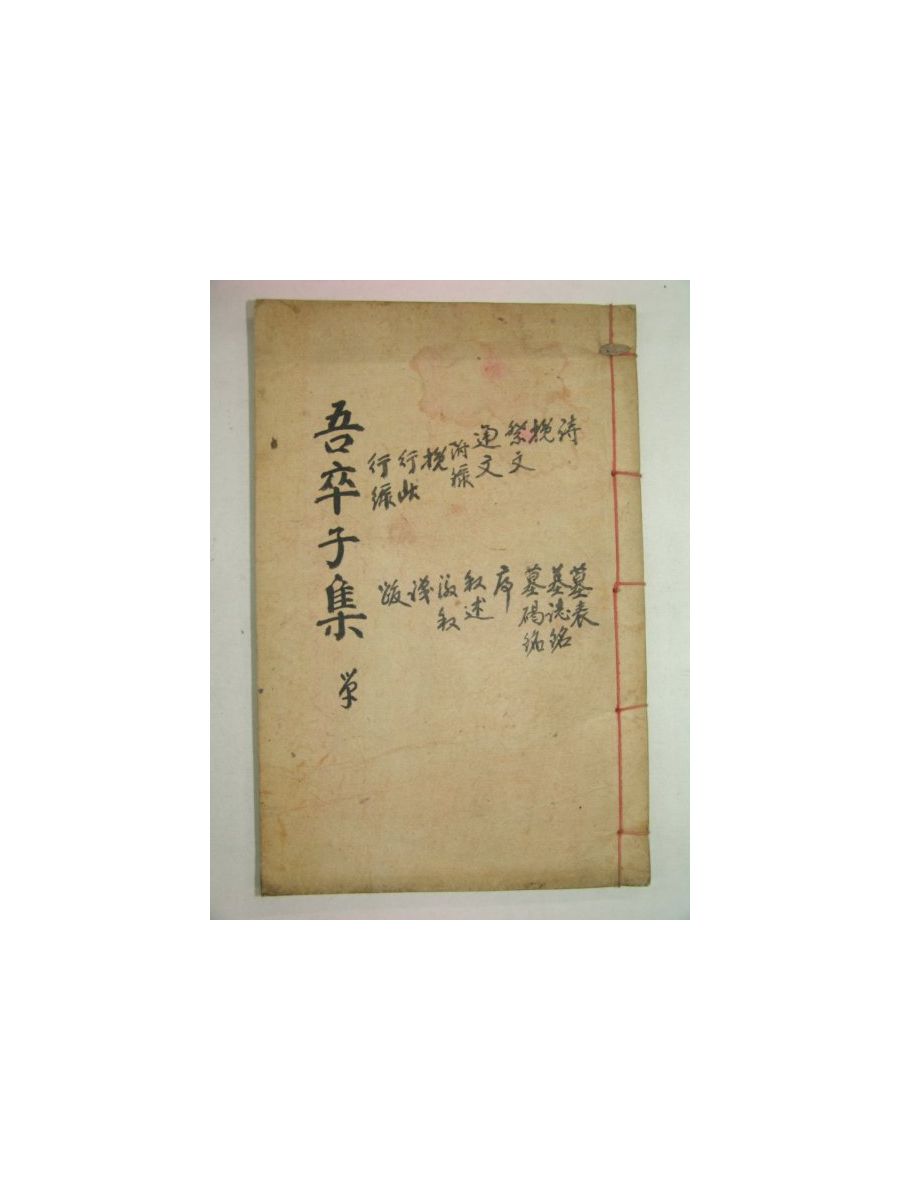 詩
挽
祭文
通文
附錄
挽
行狀
行錄
墓表
墓誌銘
墓碣銘
序
叙述
後叙
識
跋
吾卒子集 單